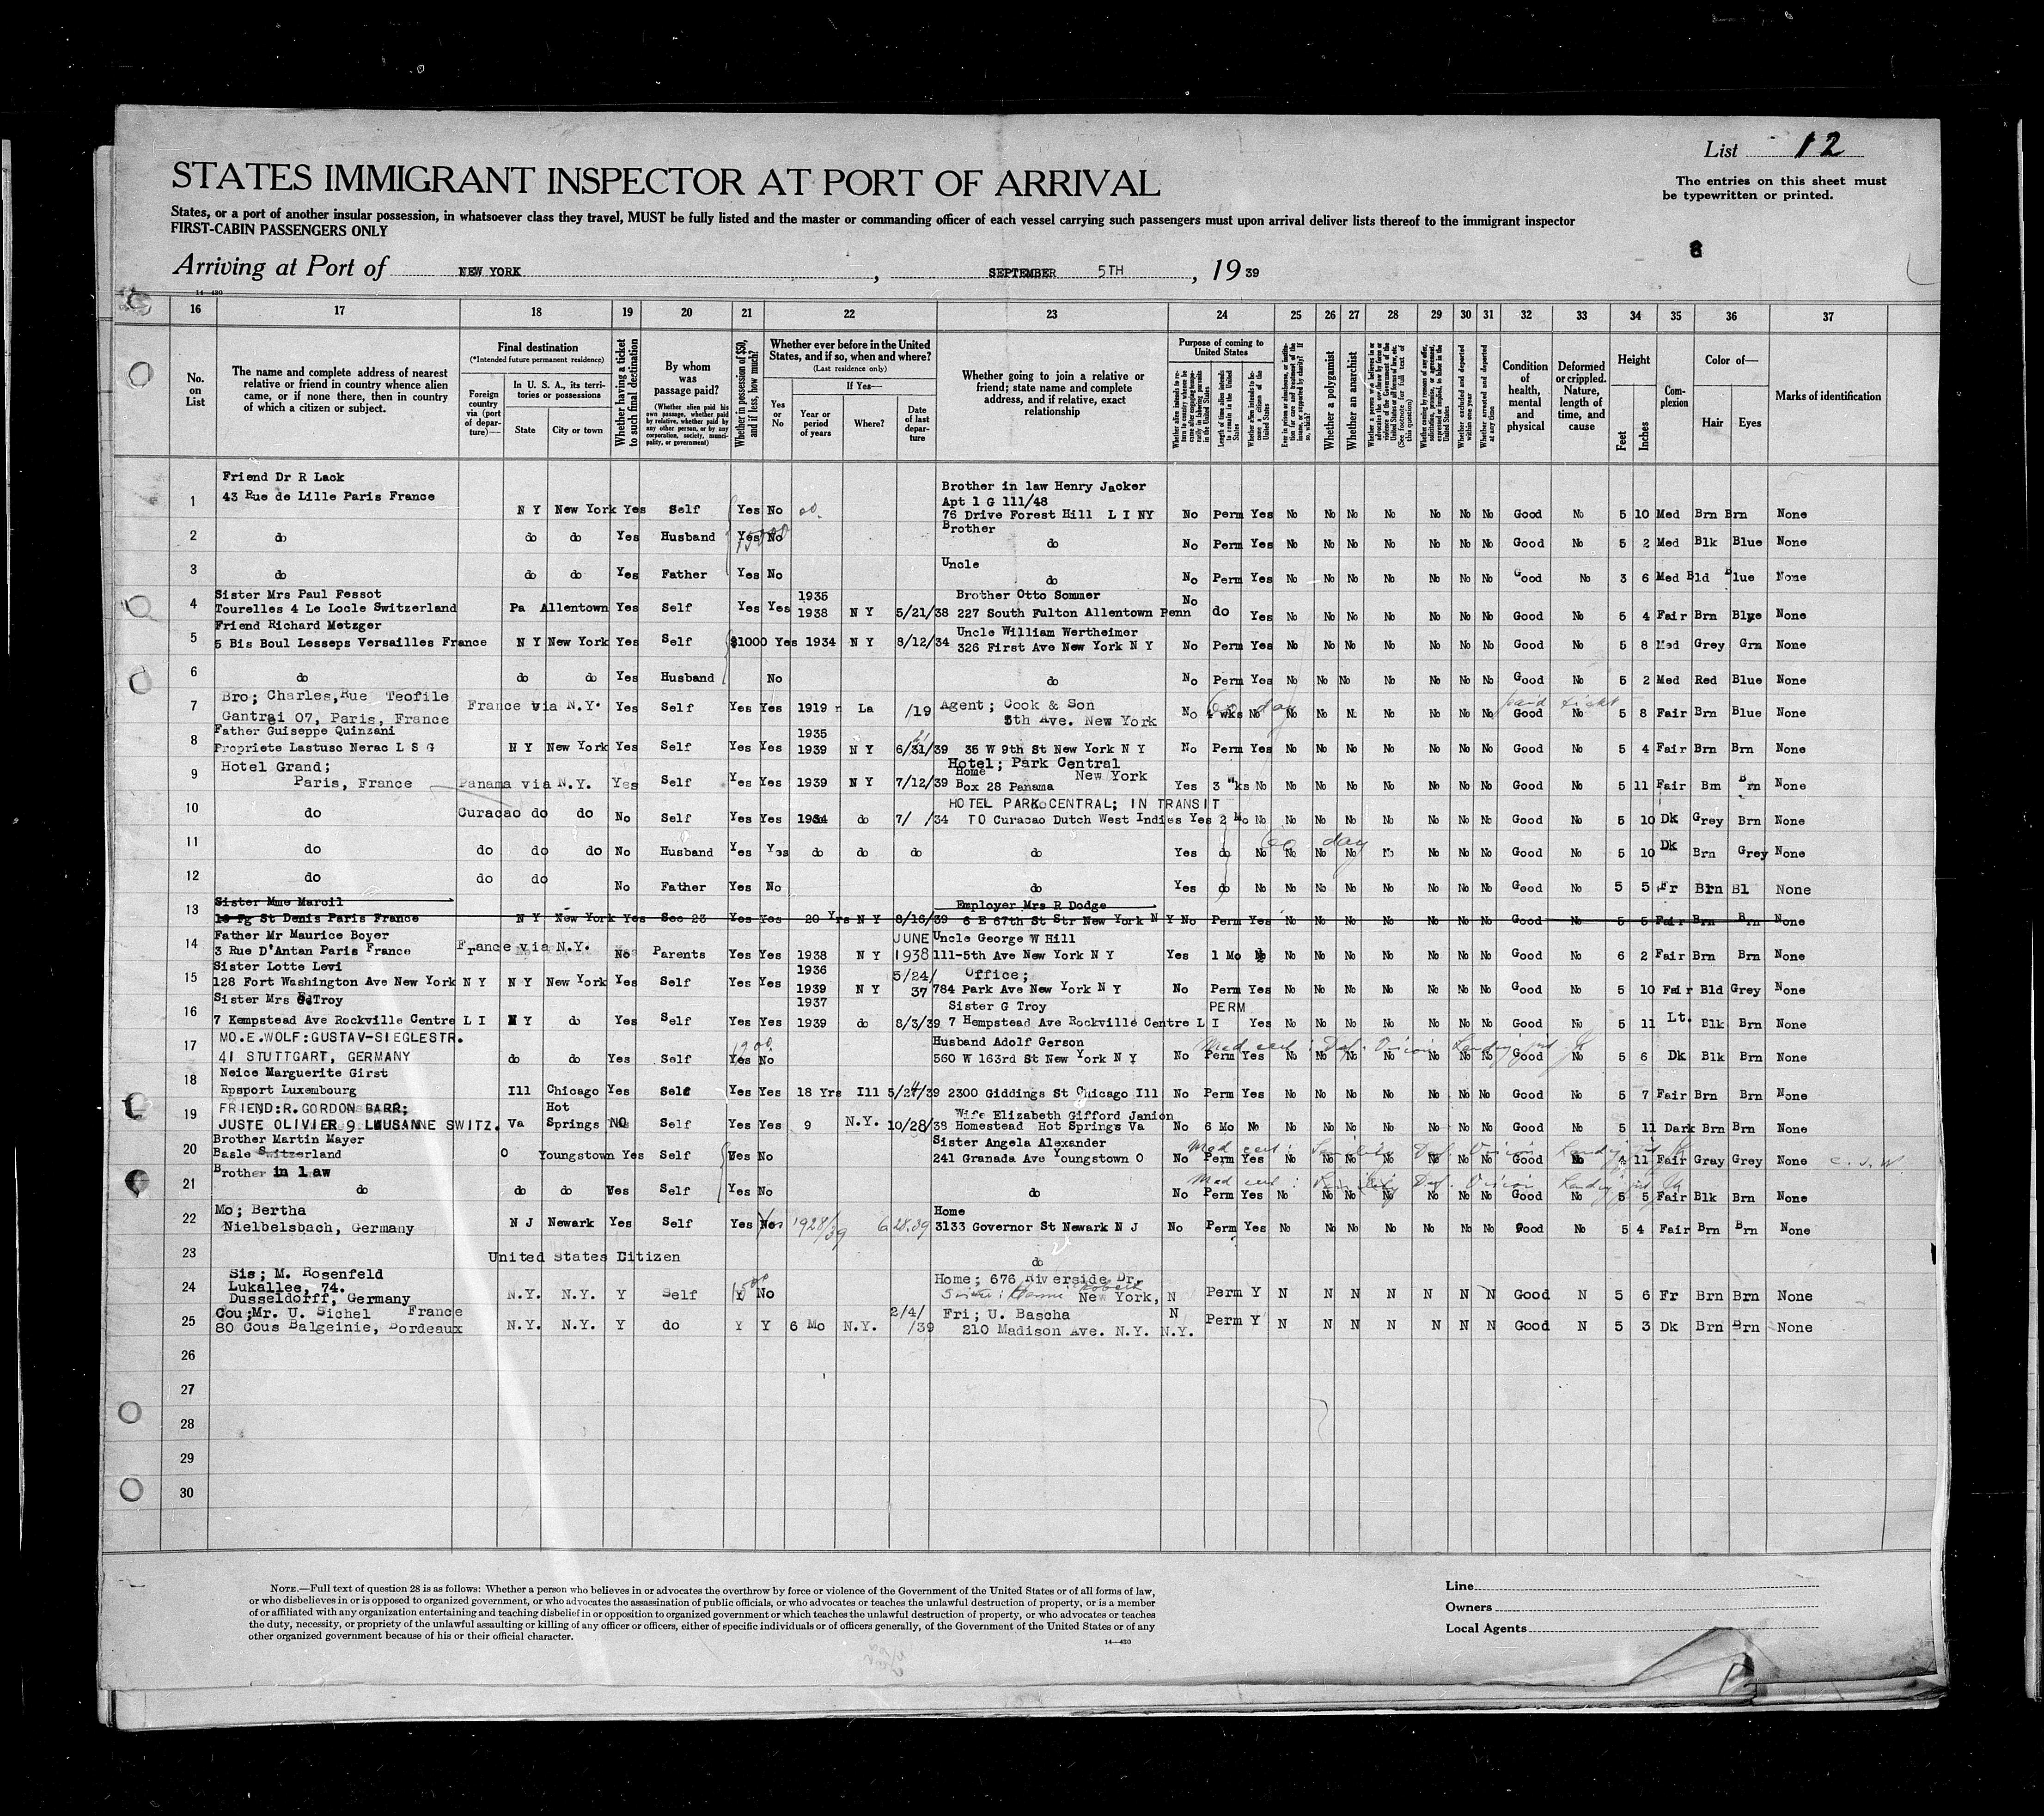 List 12
STATES IMMIGRANT INSPECTOR AT PORT OF ARRIVAL
The entries on this sheet must
be typewritten or printed.
States, or a port of another insular possession, in whatsoever class they travel, MUST be fully listed and the master or commanding officer of each vessel carrying such passengers must upon arrival deliver lists thereof to the immigrant inspector
FIRST-CABIN PASSENGERS ONLY
8
Arriving at Port of NEW YORK , SEPTEMBER 5TH , 19 39
14—430
16 17 18 19 20 21 22 23 24 25 26 27 28 29 30 31 32 33 34 35 36 37
No. on List
The name and complete address of nearest relative or friend in country whence alien came, or if none there, then in country of which a citizen or subject.
Final destination
(*Intended future permanent residence)
Foreign country via (port of departure)—
In U. S. A., its territories or possessions
State
City or town
Whether having a ticket to such final destination
By whom was passage paid?
(Whether alien paid his own passage, whether paid by relative, whether paid by any other person, or by any corporation, society, municipality, or government)
Whether in possession of $50, and if less, how much?
Whether ever before in the United States, and if so, when and where?
(Last residence only)
Yes or No
If Yes—
Year or period of years
Where?
Date of last departure
Whether going to join a relative or friend; state name and complete address, and if relative, exact relationship
Purpose of coming to United States
Length of time alien intends to remain in the United States
Whether alien intends to become a citizen of the United States
Whether a polygamist
Whether an anarchist
Whether excluded and deported within one year
Whether arrested and deported at any time
Condition of health, mental and physical
Deformed or crippled. Nature, length of time, and cause
Height
Feet
Inches
Complexion
Color of—
Hair
Eyes
Marks of identification
Friend Dr R Lack
Brother in law Henry Jacker
1 43 Rue de Lille Paris France
Apt 1 G 111/48
N Y New York Yes Self Yes No 76 Drive Forest Hill L I NY No Perm Yes No No No No No No No Good No 5 10 Med Brn Brn None
Brother
2 do do do Yes Husband Yes No do No Perm Yes No No No No No No No Good No 5 2 Med Blk Blue None
Uncle
3 do do do Yes Father Yes No do No Perm Yes No No No No No No No Good No 3 6 Med Bld Blue None
Sister Mrs Paul Fessot 1935 Brother Otto Sommer
4 Tourelles 4 Le Locle Switzerland Pa Allentown Yes Self Yes Yes 1938 N Y 5/21/38 227 South Fulton Allentown Penn No do Yes No No No No No No No Good No 5 4 Fair Brn Blue None
Friend Richard Metzger Uncle William Wertheimer
5 5 Bis Boul Lesseps Versailles France N Y New York Yes Self $1000 Yes 1934 N Y 8/12/34 326 First Ave New York N Y No Perm Yes No No No No No No No Good No 5 8 Med Grey Grn None
6 do do do Yes Husband No do No Perm Yes No No No No No No No Good No 5 2 Med Red Blue None
Bro; Charles, Rue Teofile Agent; Cook & Son
7 Gantrai 07, Paris, France France via N.Y. Yes Self Yes Yes 1919 La /19 5th Ave. New York No 4 wks No No No No No No No No Good No 5 8 Fair Brn Blue None
paid ticket
Father Guiseppe Quinzani 1935
8 Propriete Lastuso Nerac L S G N Y New York Yes Self Yes Yes 1939 N Y 6/31/39 35 W 9th St New York N Y No Perm Yes No No No No No No No Good No 5 4 Fair Brn Brn None
Hotel Grand; Hotel; Park Central
Home New York
9 Paris, France Panama via N.Y. Yes Self Yes Yes 1939 N Y 7/12/39 Box 28 Panama Yes 3 wks No No No No No No No No Good No 5 11 Fair Brn Brn None
HOTEL PARK CENTRAL; IN TRANSIT
10 do Curacao do do No Self Yes Yes 1934 do 7/ /34 TO Curacao Dutch West Indies Yes 2 Mo No No No No No No No No Good No 5 10 Dk Grey Brn None
60 day
11 do do do do No Husband Yes Yes do do do do Yes do No No No No No No No No Good No 5 10 Dk Brn Grey None
12 do do do No Father Yes No do Yes do No No No No No No No No Good No 5 5 Fr Brn Bl None
Sister Mme Marcil Employer Mrs R Dodge
13 18 Fg St Denis Paris France N Y New York Yes Soc 23 Yes Yes 20 Yrs N Y 8/16/39 6 E 67th St Str New York N Y No Perm Yes No No No No No No No Good No 5 5 Fair Brn Brn None
Father Mr Maurice Boyer JUNE Uncle George W Hill
14 3 Rue D'Antan Paris France France via N.Y. No Parents Yes Yes 1938 N Y 1938 111-5th Ave New York N Y Yes 1 Mo No No No No No No No Good No 6 2 Fair Brn Brn None
Sister Lotte Levi 1936 5/24/ Office;
15 128 Fort Washington Ave New York N Y N Y New York Yes Self Yes Yes 1939 N Y 37 784 Park Ave New York N Y No Perm Yes No No No No No No No Good No 5 10 Fair Bld Grey None
Sister Mrs Ed Troy 1937 Sister G Troy PERM
16 7 Kempstead Ave Rockville Centre L I N Y do Yes Self Yes Yes 1939 do 8/3/39 7 Hempstead Ave Rockville Centre L I Yes No No No No No No No Good No 5 11 Lt. Blk Brn None
MO.E.WOLF:GUSTAV-SIEGLESTR. Husband Adolf Gerson
17 41 STUTTGART, GERMANY do do Yes Self Yes No 560 W 163rd St New York N Y No Perm Yes No No No No No No No Good No 5 6 Dk Blk Brn None
Neice Marguerite Girst
18 Rpsport Luxembourg Ill Chicago Yes Self Yes Yes 18 Yrs Ill 5/24/39 2300 Giddings St Chicago Ill No Perm Yes No No No No No No No Good No 5 7 Fair Brn Brn None
FRIEND:R.GORDON BARR; Hot Wife Elizabeth Gifford Janion
19 JUSTE OLIVIER 9 LAUSANNE SWITZ. Va Springs NO Self Yes Yes 9 N.Y. 10/28/38 Homestead Hot Springs Va No 6 Mo No No No No No No No No Good No 5 11 Dark Brn Brn None
Brother Martin Mayer Sister Angela Alexander
20 Basle Switzerland O Youngstown Yes Self Yes No 241 Granada Ave Youngstown O No Perm Yes No No No No No No No Good No 4 11 Fair Gray Grey None
Med cert: Senility
Brother in law
21 do do do Yes Self Yes No do No Perm Yes No No No No No No No Good No 5 5 Fair Blk Brn None
Mo; Bertha Home
22 Nielbelsbach, Germany N J Newark Yes Self Yes Yes 1928/39 6.28.39 3133 Governor St Newark N J No Perm Yes No No No No No No No Good No 5 4 Fair Brn Brn None
23 United States Citizen do
Sis; M. Rosenfeld Home; 676 Riverside Dr,
24 Lukallee, 74. N.Y. N.Y. Y Self Y No New York, N Perm Y N N N N N N N Good N 5 6 Fr Brn Brn None
Dusseldorff, Germany
Cou;Mr. U. Sichel France 2/4/ Fri; U. Bascha N
25 80 Cous Balgeinie, Bordeaux N.Y. N.Y. Y do Y Y 6 Mo N.Y. /39 210 Madison Ave. N.Y. N.Y. Perm Y N N N N N N N Good N 5 3 Dk Brn Brn None
26
27
28
29
30
NOTE.—Full text of question 28 is as follows: Whether a person who believes in or advocates the overthrow by force or violence of the Government of the United States or of all forms of law,
or who disbelieves in or is opposed to organized government, or who advocates the assassination of public officials, or who advocates or teaches the unlawful destruction of property, or is a member
of or affiliated with any organization entertaining and teaching disbelief in or opposition to organized government or which teaches the unlawful destruction of property, or who advocates or teaches
the duty, necessity, or propriety of the unlawful assaulting or killing of any officer or officers, either of specific individuals or of officers generally, of the Government of the United States or of any
other organized government because of his or their official character.
14—430
Line
Owners
Local Agents